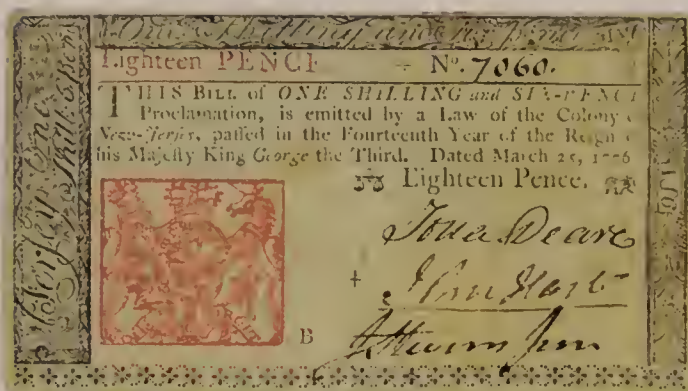 One Shilling and Six pence
Eighteen PENCE No. 7060.
THIS BILL of ONE SHILLING and SIX-PENCE
Proclamation, is emitted by a Law of the Colony
New-Jersey, paſſed in the Fourteenth Year of the Reign
his Majeſty King George the Third. Dated March 25, 1776
Eighteen Pence.
Jona. Deare
John Hart
B
J Stevens Jun